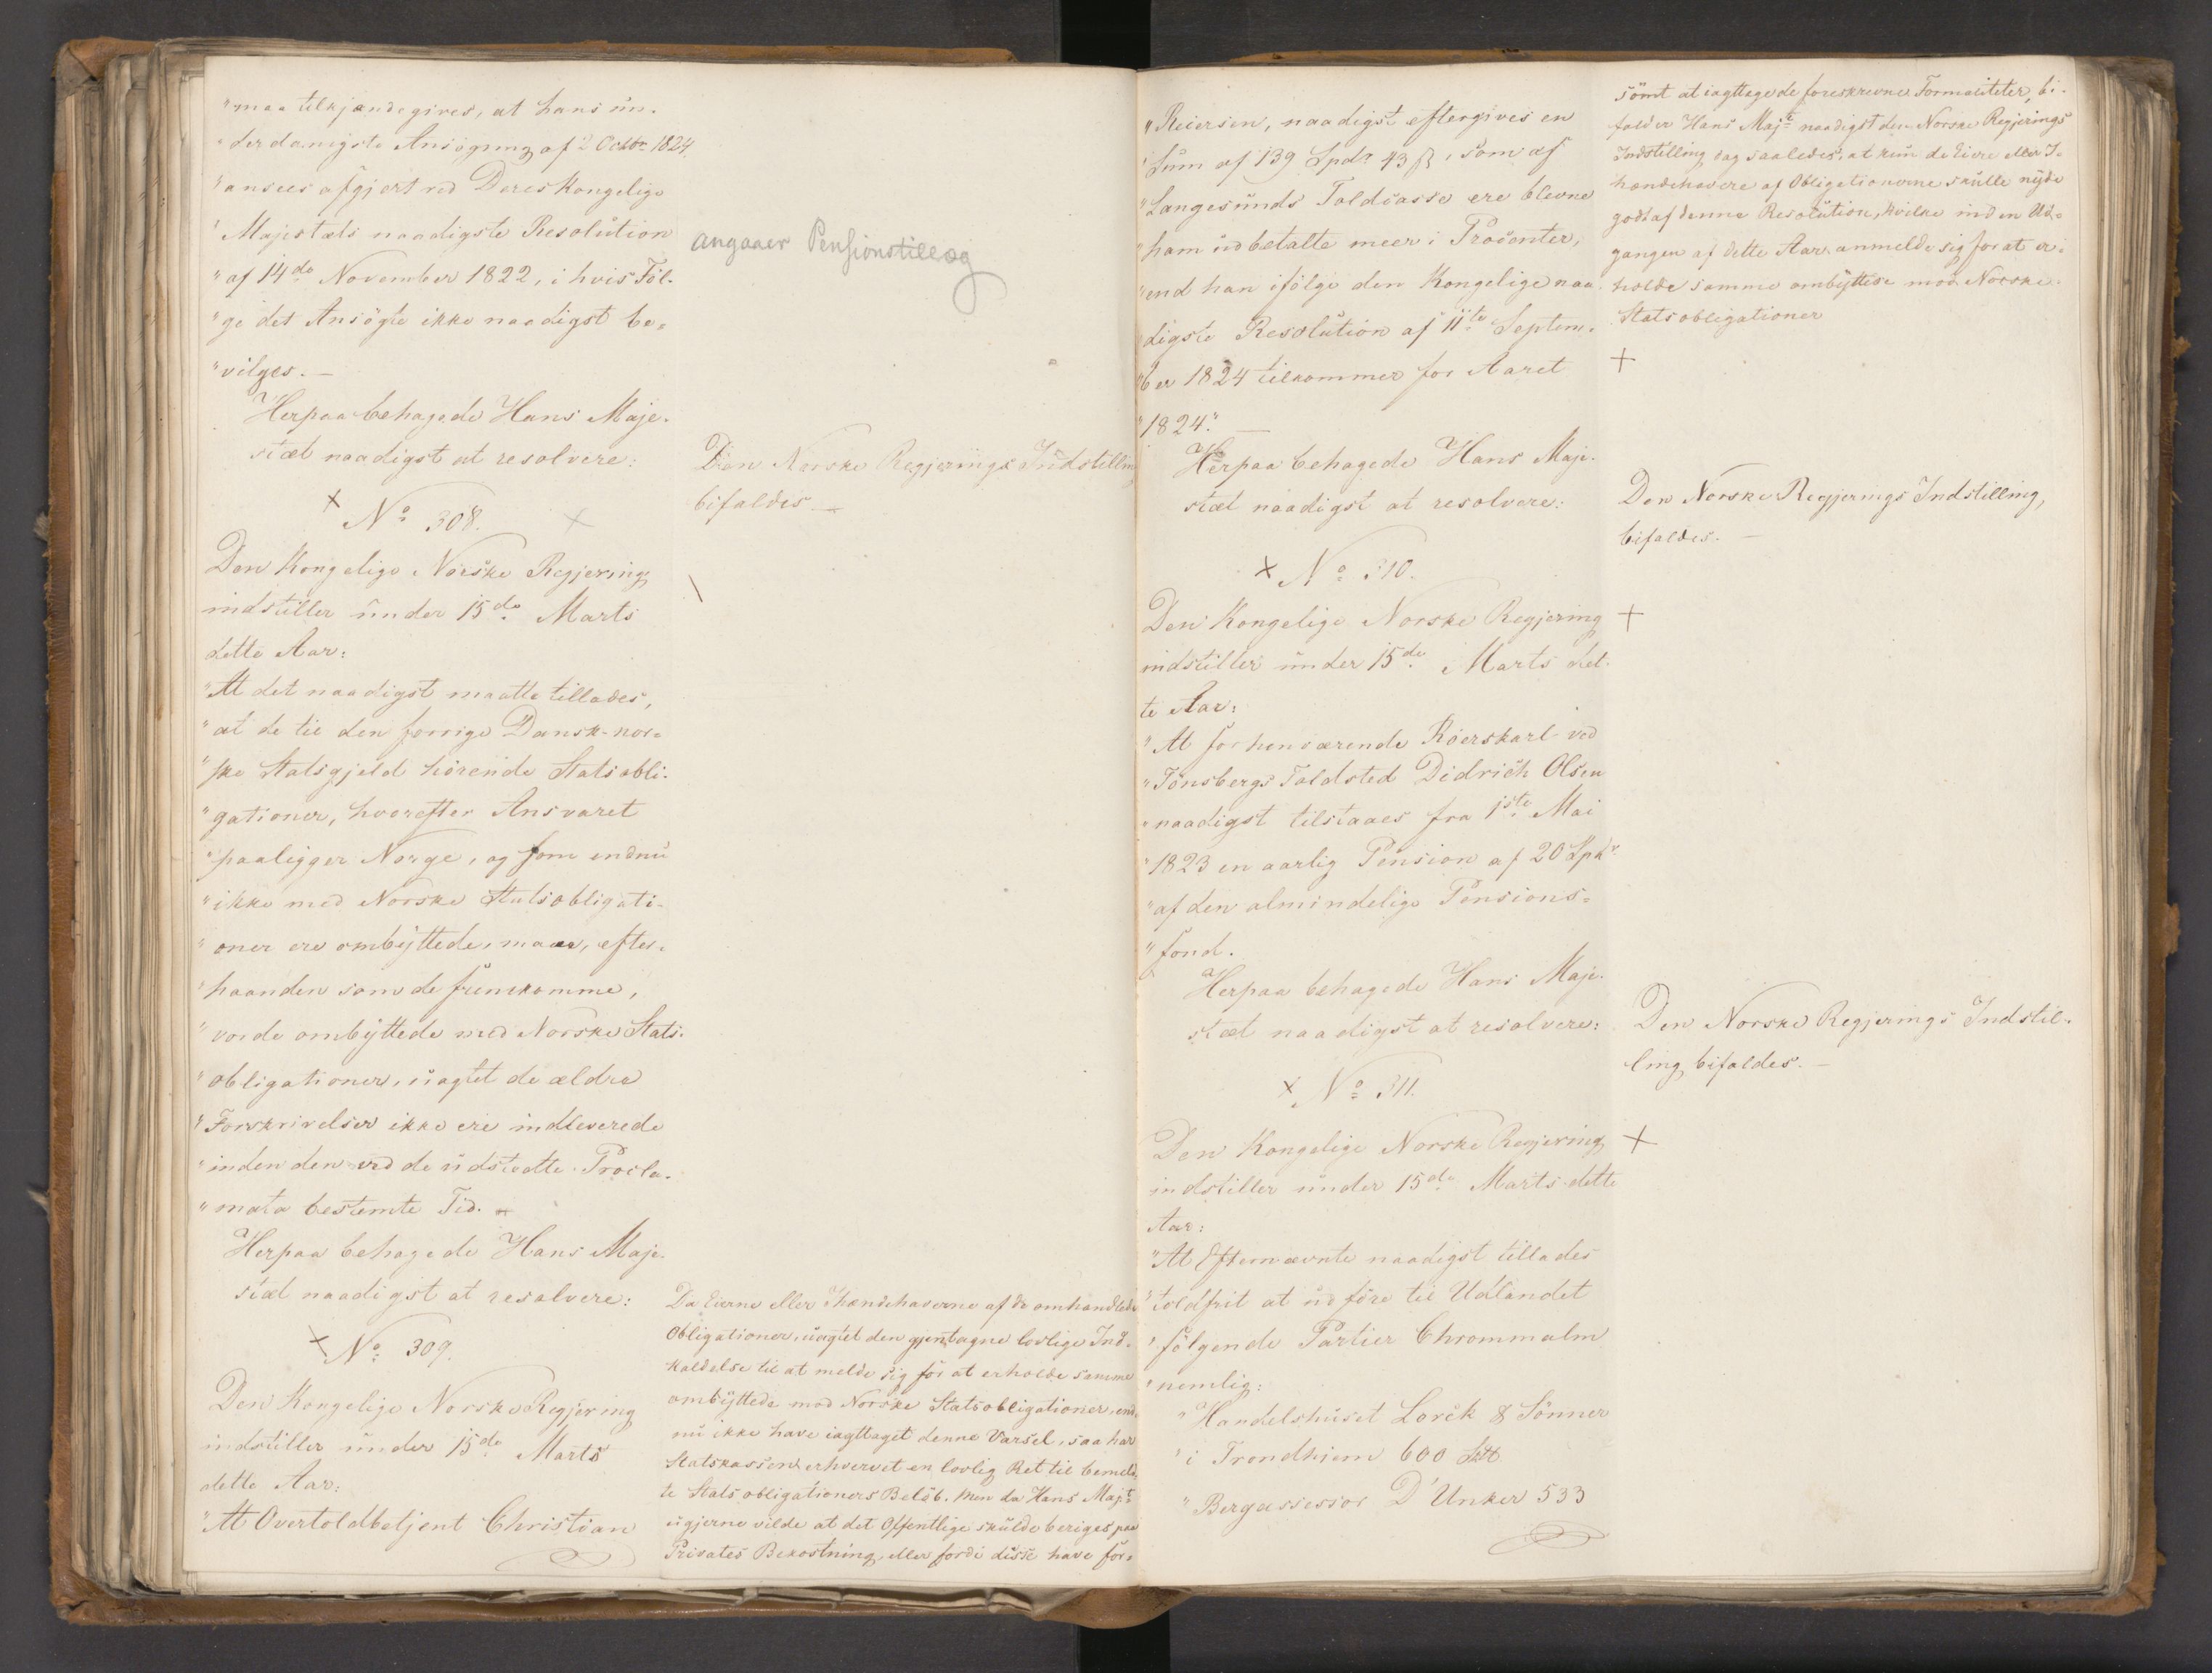 "maa tilkjendegives, at hans un-
"derdanigste Ansögning af 2 Octbr 1824
"ansees afgjort ved Deres Kongelige
"Majestæts naadigste Resolution
"af 14de November 1822, i hvis Föl-
"ge det Ansögte ikke naadigst be-
"vilges. —
Herpaa behagede Hans Maje-
stæt naadigst at resolvere:
+ No 308. +
Den Kongelige Norske Regjering
indstiller under 15de Marts
dette Aar:
"At det naadigst maatte tillades,
"at de til den forrige Dansk-nor-
"ske Statsgjeld hörende Statsobli-
"gationer, hvorefter Ansvaret
"paaligger Norge, og som endnu
"ikke med Norske Statsobligati-
"oner ere ombyttede, maae, efter-
"haanden som de fremkomme,
"vorde ombyttede med Norske Stats-
"obligationer, uagtet de ældre
"Forskrivelser ikke ere indleverede
"inden den ved de udstedte Procla-
"mata bestemte Tid. —
Herpaa behagede Hans Maje-
stæt naadigst at resolvere:
+ No 309.
Den Kongelige Norske Regjering
indstiller under 15de Marts
dette Aar:
"At Overtoldbetjent Christian
angaaer Pensionstillæg
Den Norske Regjerings Indstilling
bifaldes. —
Da Eierne eller Ihændehaverne af de omhandlede
Obligationer, uagtet den gjentagne lovlige Ind-
kaldelse til at melde sig for at erholde samme
ombyttede med Norske Statsobligationer, end-
nu ikke have iagttaget denne Varsel, saa har
Statskassen erhvervet en lovlig Ret til bemeld-
te Statsobligationers Belöb. Men da Hans Majt
ugjerne vilde at det Offentlige skulde beriges paa
Privates Bekostning, eller fordi disse have for-
"Reiersen, naadigst eftergives en
"Sum af 139 Spdr 43 ß, som af
"Langesunds Toldcasse ere blevne
"ham udbetalte meer i Procenter,
"end han ifölge den Kongelige naa-
"digste Resolution af 11te Septem-
"ber 1824 tilkommer for Aaret
"1824." —
Herpaa behagede Hans Maje-
stæt naadigst at resolvere:
+ No 310.
Den Kongelige Norske Regjering
indstiller under 15de Marts det-
te Aar:
"At forhenværende Roerskarl ved
"Tönsbergs Toldsted Didrich Olsen
"naadigst tilstaaes fra 1ste Mai
"1823 en aarlig Pension af 20 Spdr
"af den almindelige Pensions-
"fond.
Herpaa behagede Hans Maje-
stæt naadigst at resolvere:
+ No 311.
Den Kongelige Norske Regjering
indstiller under 15de Marts dette
Aar:
"At Efternævnte naadigst tillades
"toldfrit at udföre til Udlandet
"fölgende Partier Chrommalm
"nemlig:
"Handelshuset Lorck & Sönner
"i Trondhiem 600 Sk℔
"Bergassessor D'Unker 533
sömt at iagttage de foreskrevne Formaliteter, bi-
falder Hans Majt naadigst den Norske Regjerings
Indstilling dog saaledes, at kun de Eiere eller I-
hændehavere af Obligationerne skulle nyde
godt af denne Resolution, hvilke inden Ud-
gangen af dette Aar anmelde sig for at er-
holde samme ombyttede mod Norske
Statsobligationer
+
Den Norske Regjerings Indstilling,
bifaldes. —
+
Den Norske Regjerings Indstil-
ling bifaldes. —
+